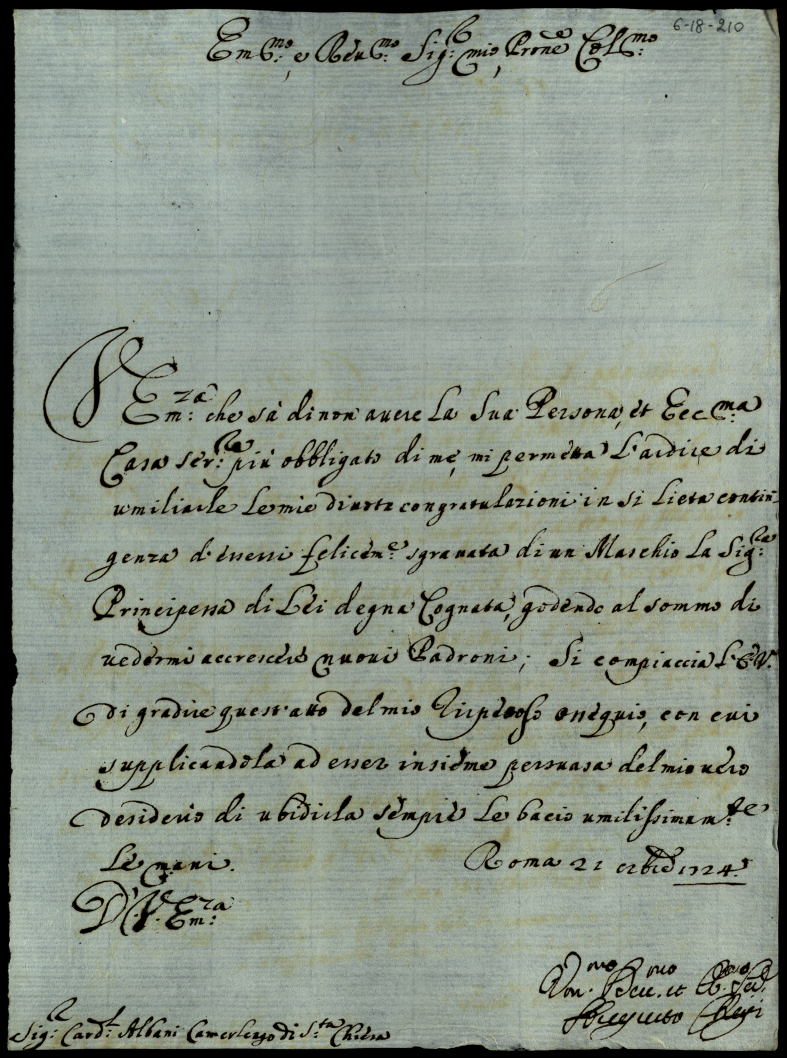 6-18-210
Em.mo, e Reu.mo Sig.r mio, Prone Col.mo
V. Em.za che sà di non auere La Sua Persona, et Ecc.ma
Casa ser.re più obbligato di me, mi permetta L'ardire di
umiliarle Le mie diuote congratulazioni in si Lieta contin-
genza d'essersi felicem.e sgrauata di un Maschio La Sig.ra
Principessa di Lei degna Cognata, godendo al sommo di
uedermi accrescere nuoui Padroni; Si compiaccia L'E.V.
di gradire quest'atto del mio rispettoso ossequio, con cui
supplicandola ad esser insieme persuasa del mio uero
desiderio di ubidirla sempre Le bacio umilissimam.te
Le mani. Roma 21 1724.
D. V. Em.za
Sig.r Card.l Albani Camerlengo di S.ta Chiesa